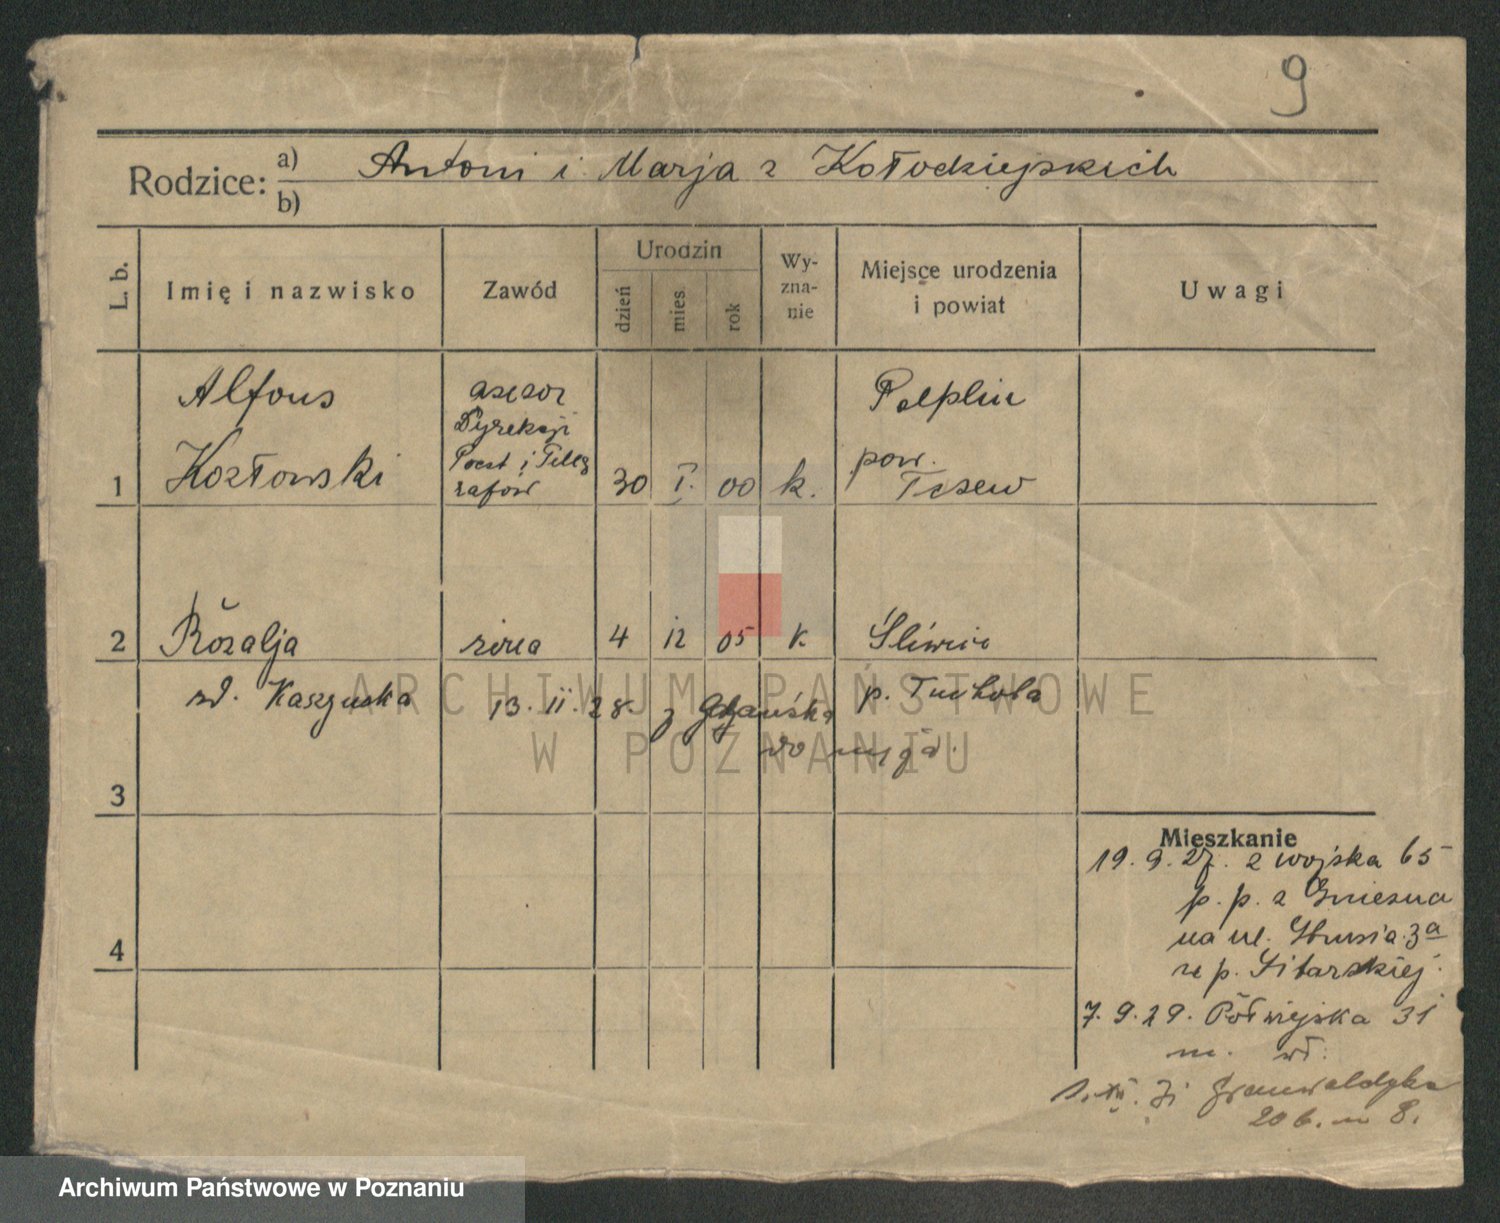 9
Rodzice: a) Antoni i Marja z Kołodziejskich
b)
L. b. Imię i nazwisko Zawód Urodzin dzień mies. rok Wyznanie Miejsce urodzenia i powiat Uwagi
1 Alfons Kozłowski
asesor
Dyrekcji
Poczt i Teleg
rafów
30 I. 00 k.
Pelplin
pow.
Tczew
2 Rózalja żona 4 12 05 k. Śliwice
zd. Kaszuska 13. II. 28. z Gdańska p. Tuchola
do męża.
3
4
Mieszkanie
19. 9. 27. z wojska 65
p. p. z Gniezna
na ul. 3a
u p. Sitarskiej.
7. 9. 29. Półwiejska 31
m. wł.
Grunwaldzka
20 b. m 8.
ARCHIWUM PAŃSTWOWE
W POZNANIU
Archiwum Państwowe w Poznaniu